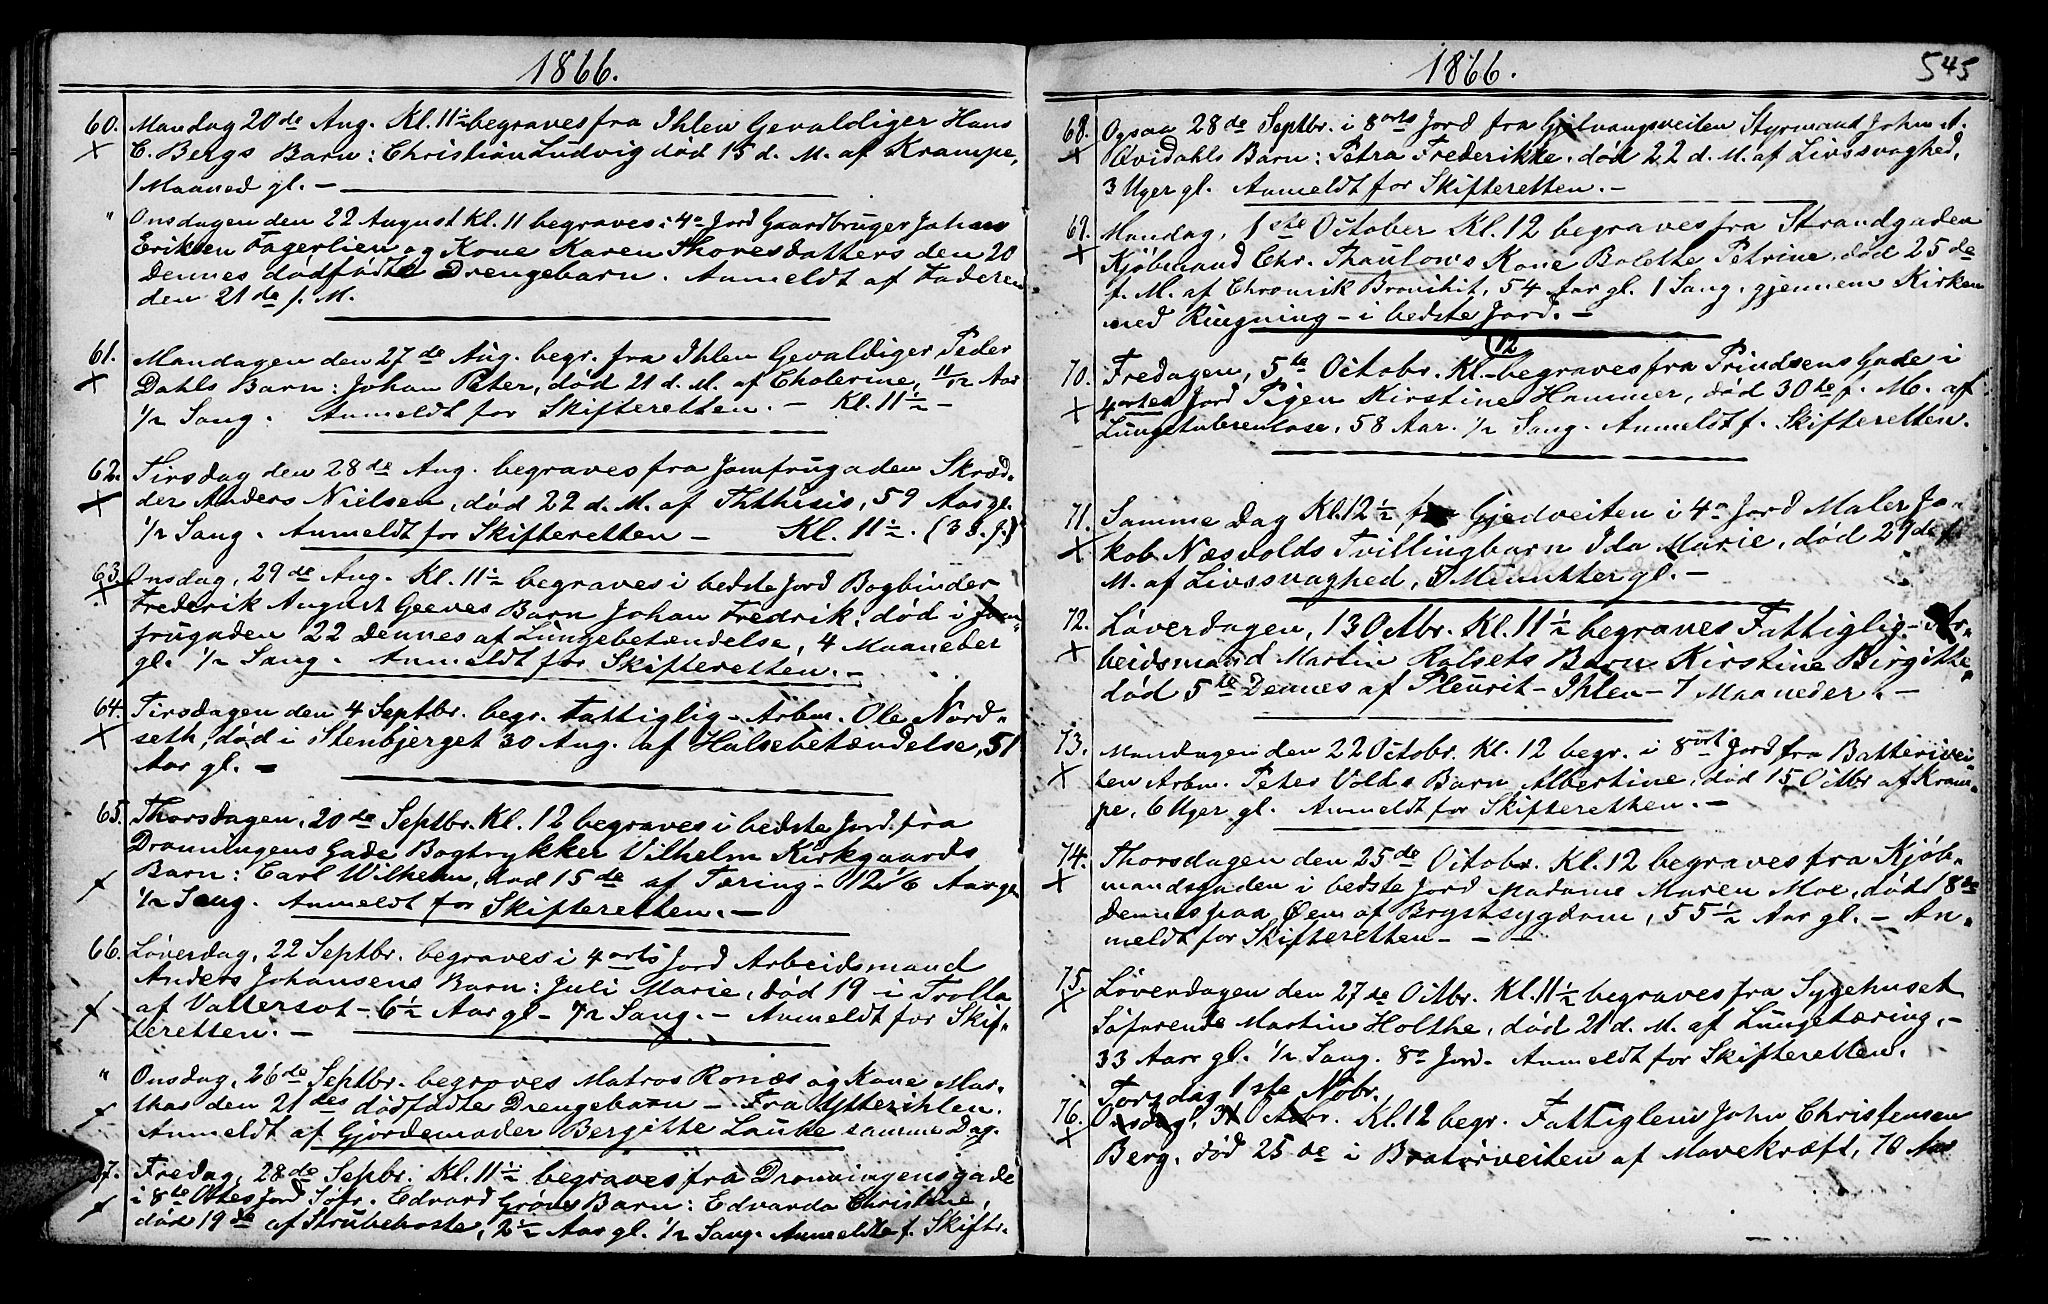 1866.
60. Mandag 20de Aug. Kl. 11½ begraves fra Ihlen Gevaldiger Hans
C. Bergs Barn: Christian Ludvig død 15 d. M. af Krampe,
1 Maaned gl. –
" Onsdagen den 22 August Kl. 11 begraves i 4. Jord Gaardbruger Johan
Eriksen Fagerlien og Kone Karen Thoresdatters den 20
dennes dødfødte Drengebarn. Anmeldt af Faderen
den 21de s. M.
61. Mandagen den 27de Aug. begr. fra Ihlen Gevaldiger Peder
Dahls Barn: Johan Peter, død 21 d. M. af Cholerine, 11/12 Aar
1/2 Sang. Anmeldt for Skifteretten. – Kl. 11½ –
62. Tirsdag den 28de Aug. begraves fra Jomfrugaden Skræd-
der Anders Nielsen, død 22 d. M. af Phthisis, 59 Aar gl.
1/2 Sang. Anmeldt for Skifteretten – Kl. 11½. (3 S. J.)
63. Onsdag, 29de Aug. Kl. 11½ begraves i bedste Jord Bogbinder
Frederik August Geeves Barn Johan Fredrik, død i Jom-
frugaden 22 dennes af Lungebetændelse, 4 Maaneder
gl. 1/2 Sang. Anmeldt for Skifteretten. –
64. Tirsdagen den 4 Septbr. begr. Fattiglig – Arbm. Ole Nord-
seth, død i Stenbjerget 30 Aug. af Halsebetændelse, 51
Aar gl. –
65. Thorsdagen, 20de Septbr. Kl. 12 begraves i bedste Jord fra
Dronningens Gade Bogtrykker Vilhelm Kirkgaards
Barn: Carl Wilhelm, død 15de af Tæring – 12 1/6 Aar gl
1/2 Sang. Anmeldt for Skifteretten. –
66. Løverdag, 22 Septbr. begraves i 4orts Jord Arbeidsmand
Anders Johansens Barn: Juli Marie, død 19 i Trolla
af Vattersot – 6½ Aar gl – 1/2 Sang. – Anmeldt for Skif-
teretten. –
" Onsdag, 26de Septbr. begraves Matros Ronæs og Kone Mar-
thas den 21des dødfødte Drengebarn – Fra Ytterihlen.
Anmeldt af Gjordemoder Bergitte Lauke samme Dag.
67. Fredag, 28de Septbr. Kl. 11½ begraves fra Dronningensgade
i 8te Ortes Jord Søfr. Edvard Grøns Barn: Edvarda Christine,
død 19de af Strubehoste, 2½ Aar gl. 1/2 Sang. Anmeldt f. Skiftr.
1866. 545
68. Ogsaa 28de Septbr. i 8orts Jord fra Gjetvangsveiten Styrmand John A.
Qvidahls Barn: Petra Frederikke, død 22 d. M. af Livssvaghed,
3 Uger gl. Anmeldt for Skifteretten. –
69. Mandag, 1ste October Kl. 12 begraves fra Strandgaden
Kjøbmand Chr. Thaulows Kone Boldte Petrine, død 25de
f. M. af Chronisk Bronchit, 54 Aar gl. 1 Sang. gjennem Kirken
med Ringning – i bedste Jord. –
70. Fredagen, 5te Octobr. Kl. 12 begraves fra Prindsens Gade i
4ortes Jord Pigen Kirstine Hammer, død 30te f. M. af
Lungetuberculose, 58 Aar. 1/2 Sang. Anmeldt f. Skifteretten.
71. Samme Dag Kl. 12½ fra Gjedveiten i 4. Jord Maler Ja-
kob Næsvolds Tvillingbarn Ida Marie, død 29de f.
M. af Livssvaghed, 5 Minutter gl. –
72. Løverdagen, 13 Octbr. Kl. 11½ begraves Fattiglig – Ar-
beidsmand Martin Rolsets Barn Kirstine Birgitte,
død 5te Dennes af Pleurit – Ihlen – 7 Maaneder. –
73. Mandagen den 22 Octobr. Kl. 12 begr. i 8orts Jord fra Batterivei-
ten Arbm. Peter Volds Barn Albertine, død 15 Octbr af Kram-
pe, 6 Uger gl. Anmeldt for Skifteretten. –
74. Thorsdagen den 25de Octobr. Kl. 12 begraves fra Kjøb-
mandsgaden i bedste Jord Madame Maren Moe, død 18de
Dennes paa Øen af Brystsygdom, 55½ Aar gl. – An-
meldt for Skifteretten – – –
75. Løverdagen den 27de Octbr. Kl. 11½ begraves fra Sygehuset
Søfarende Martin Holthe, død 21 d. M. af Lungetæring, –
33 Aar gl. 1/2 Sang. 8. Jord. Anmeldt for Skifteretten.
Torsdag 1ste Nobr.
76. Onsdag, 31 Octobr. Kl. 12 begr. Fattiglem John Christensen
Berg, død 25de i Bratørveiten af Mavekræft, 70 Aar